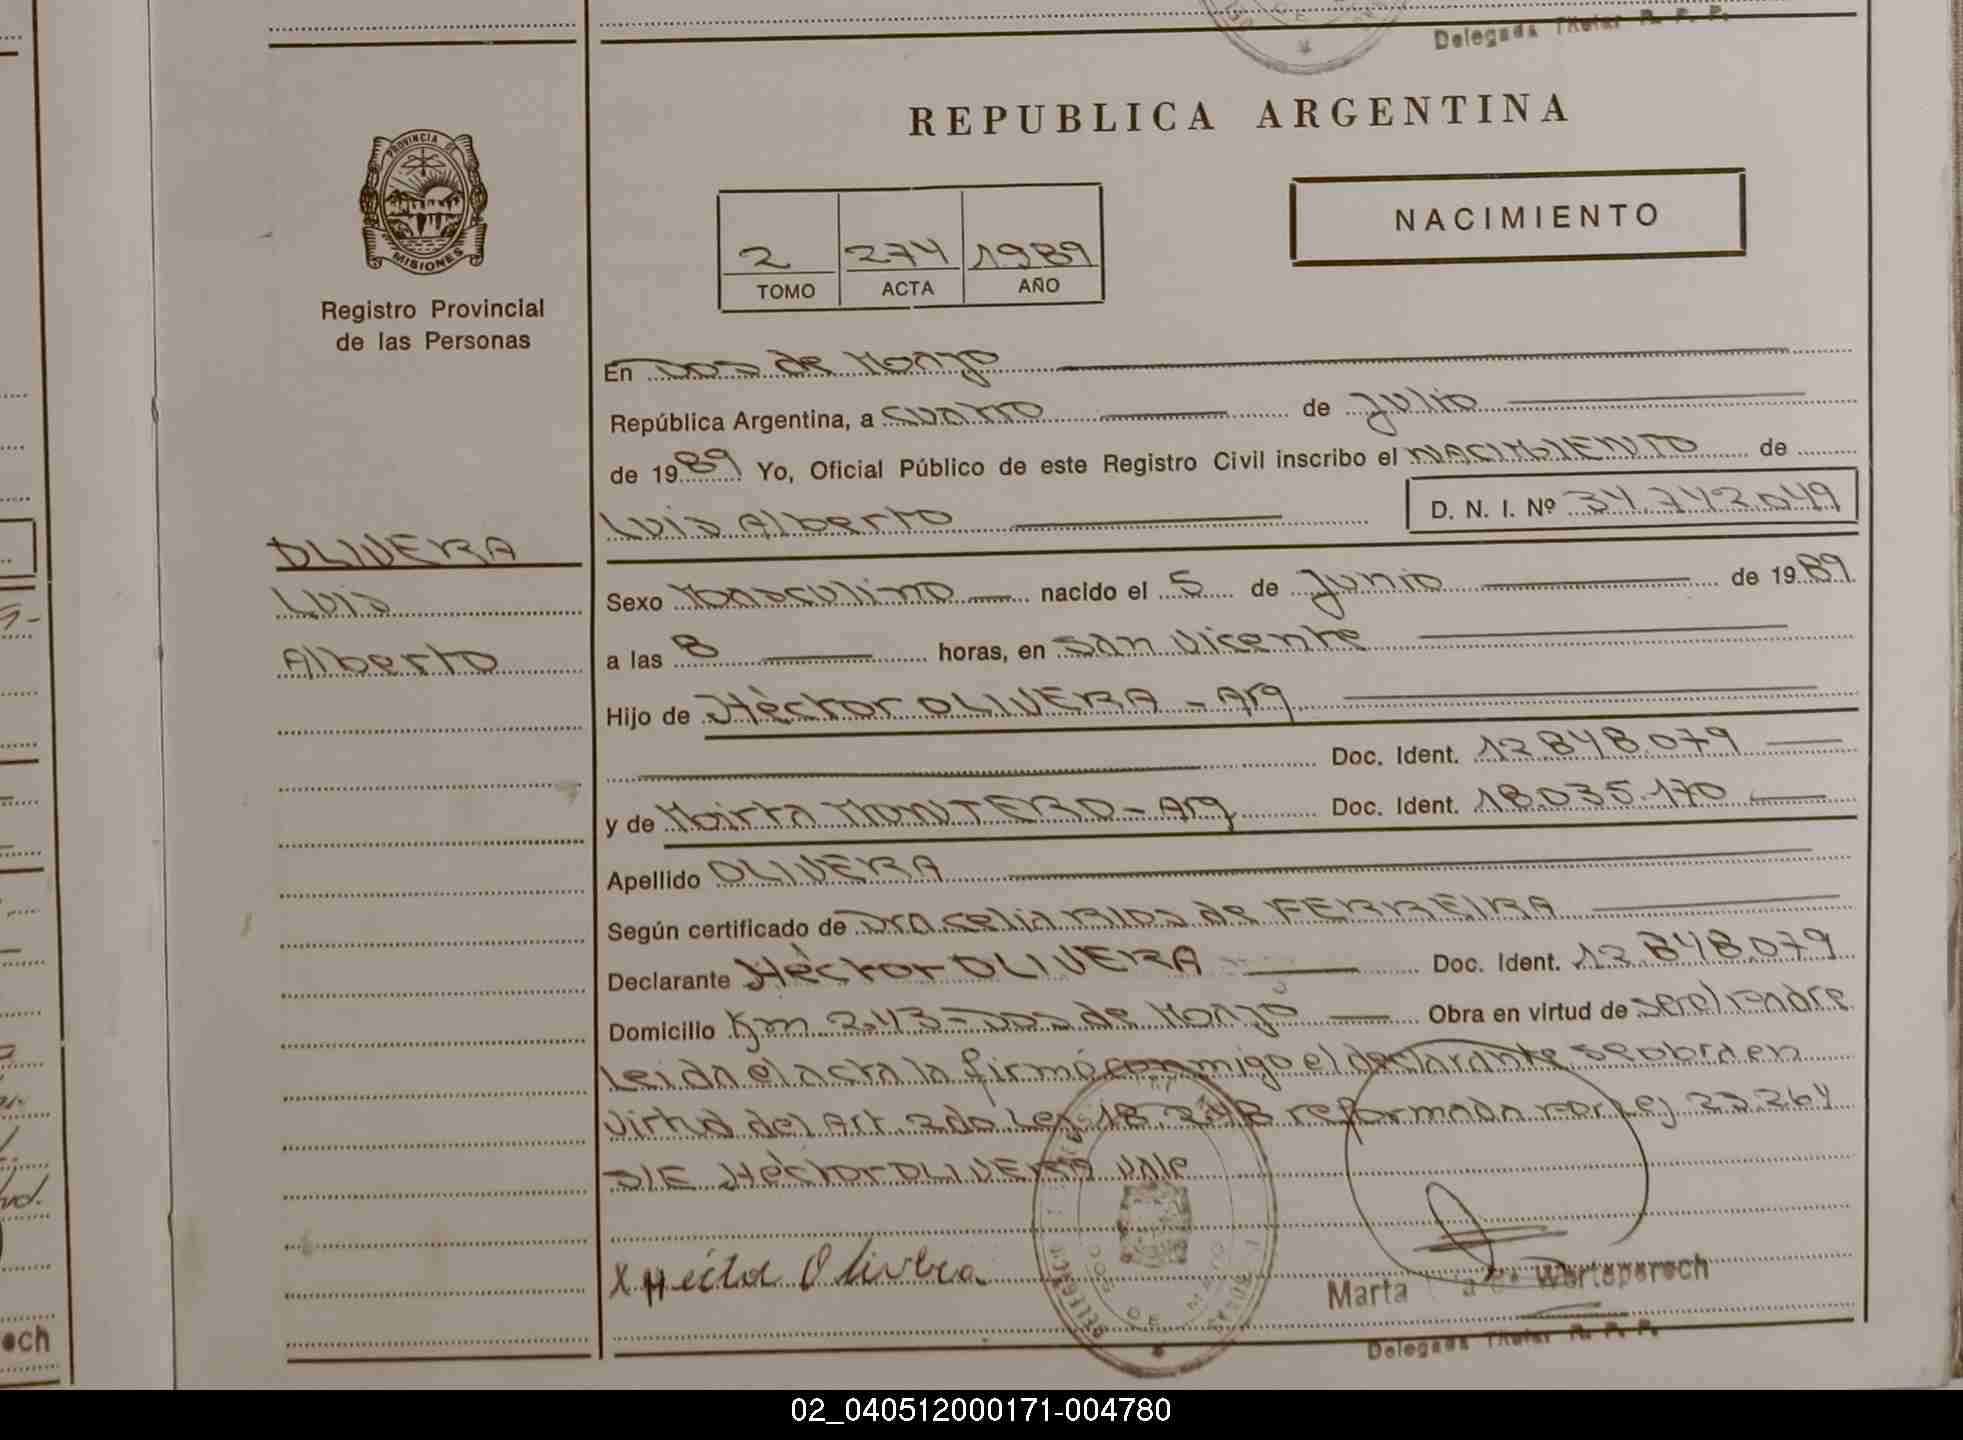 Delegada Titular R. P. P.
REPUBLICA ARGENTINA
PROVINCIA DE
MISIONES
Registro Provincial
de las Personas
NACIMIENTO
2 274 1989
TOMO ACTA AÑO
En Dos de Mayo
República Argentina, a cuatro de Julio
de 1989 Yo, Oficial Público de este Registro Civil inscribo el NACIMIENTO de
Luis Alberto D. N. I. Nº 34.742.049
OLIVERA
Luis
Alberto
Sexo Masculino nacido el 5 de Junio de 1989
a las 8 horas, en San Vicente
Hijo de Héctor OLIVERA - Arg
Doc. Ident. 12.848.079
y de Mirta MONTERO - Arg Doc. Ident. 18.035.170
Apellido OLIVERA
Según certificado de Dra Celia Rios de FERREIRA
Declarante Héctor OLIVERA Doc. Ident. 12.848.079
Domicilio Km 243 - Dos de Mayo Obra en virtud de ser el Padre
Leida el acta la firmó conmigo el declarante se obra en
virtud del Art. 2do Ley 18.248 reformada por Ley 23.264
S/E Héctor OLIVERA Vale
x Héctor Olivera
DOS DE MAYO
Marta de Warteperoch
Delegada Titular R. P. P.
och
02_040512000171-004780